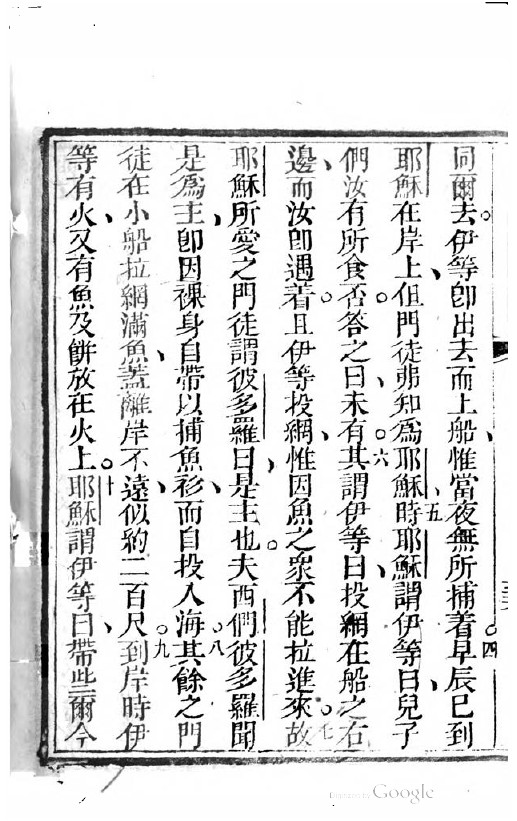 同爾去伊等卽出去而上船惟當夜無所捕着四早辰已到
耶穌在岸上但門徒弗知爲耶穌時五耶穌謂伊等曰兒子
們汝有所食否答之曰未有六其謂伊等曰投網在船之右
邊而汝卽遇着且伊等投網惟因魚之衆不能拉進來七故
耶穌所愛之門徒謂彼多羅曰是主也夫西們彼多羅聞
是爲主卽因裸身自帶以捕魚衫而自投入海八其餘之門
徒在小船拉網滿魚蓋離岸不遠似約二百尺九到岸時伊
等有火又有魚及餅放在火上十耶穌謂伊等曰帶些爾今
Digitized by Google